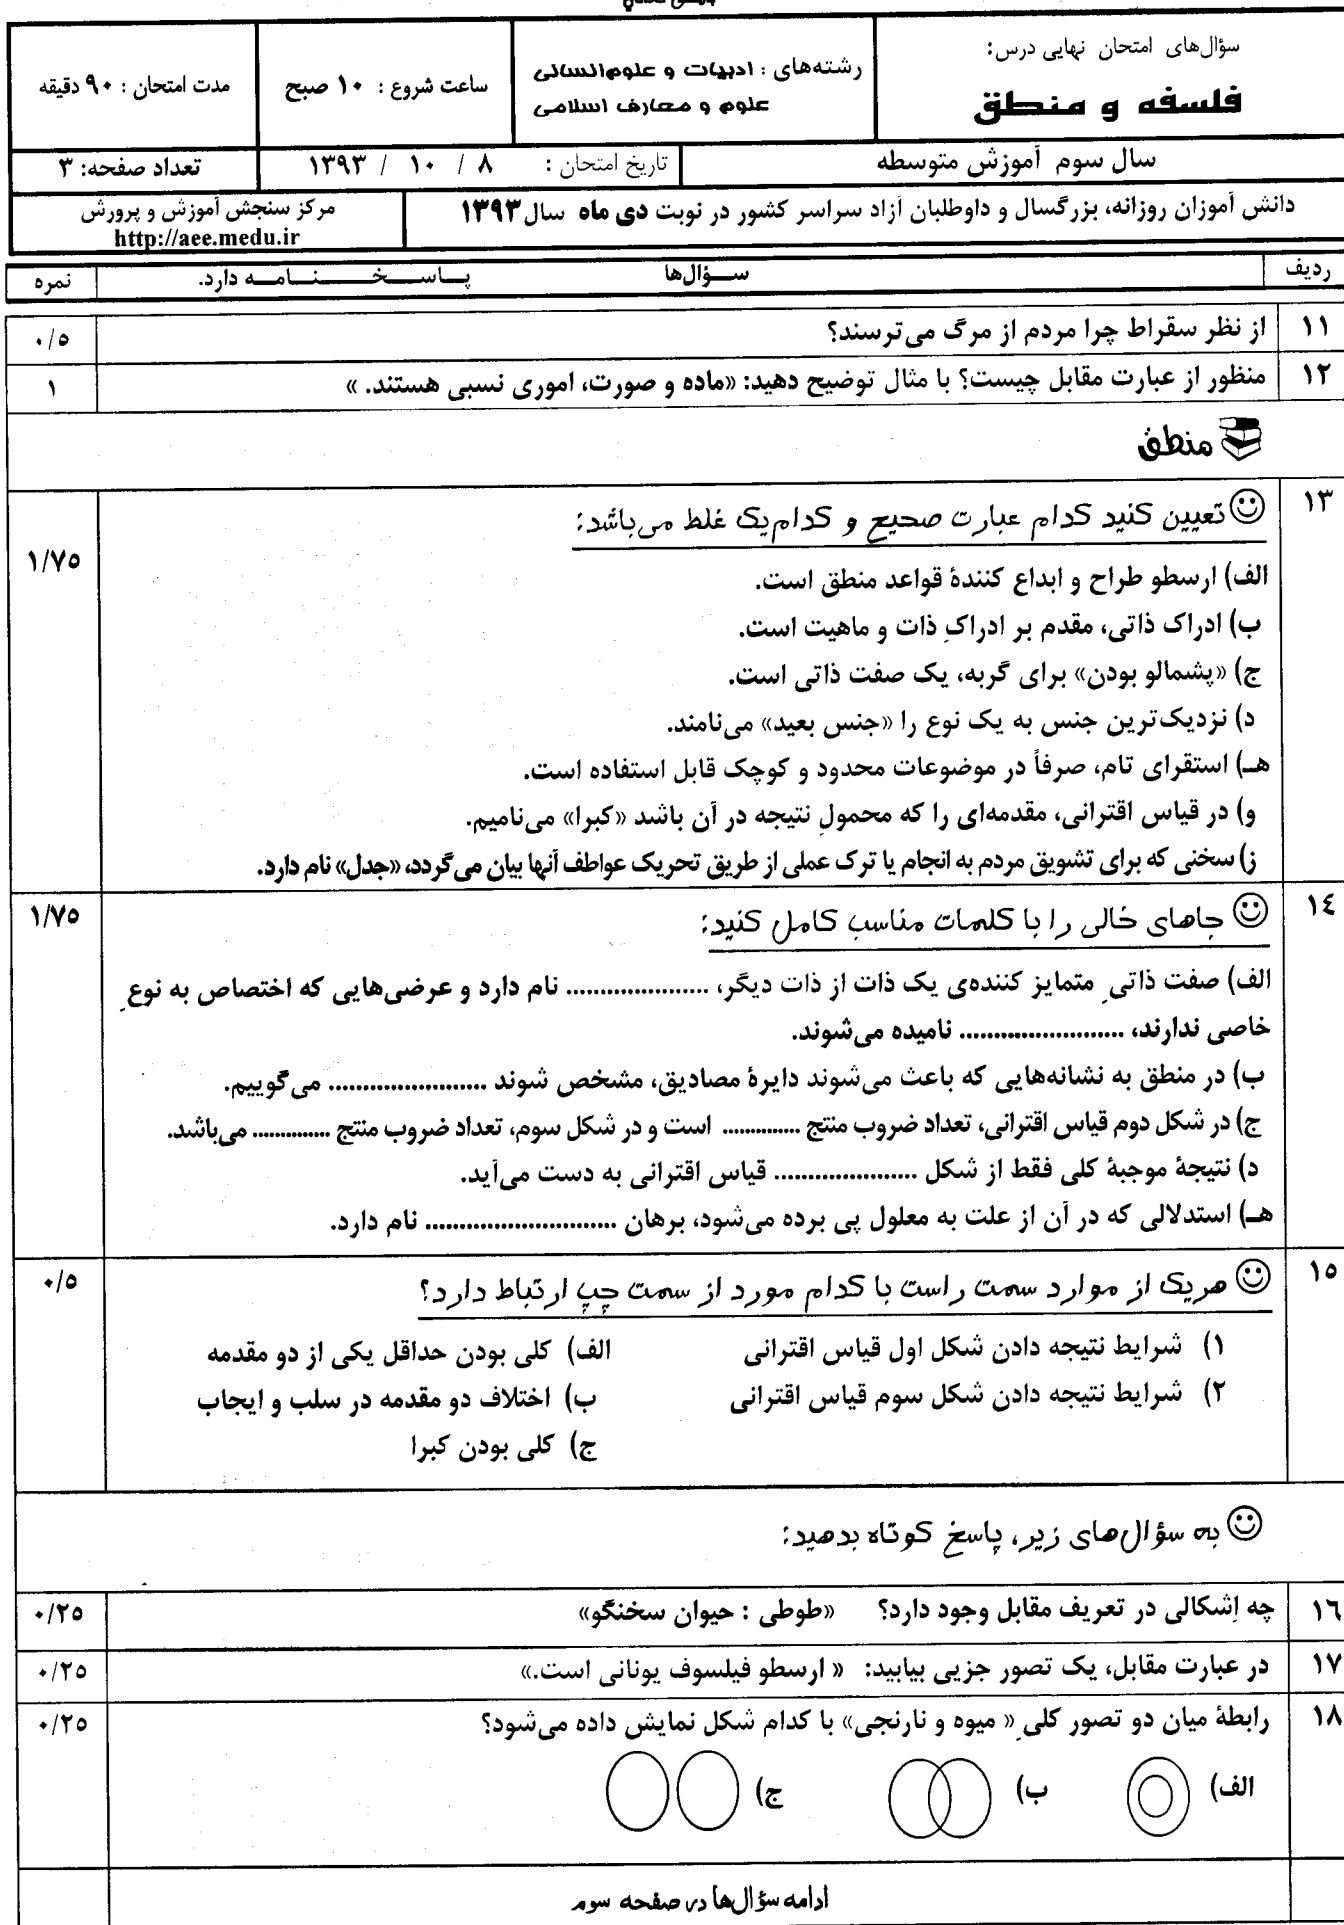 سؤال‌های امتحان نهایی درس:
فلسفه و منطق
رشته‌های : ادبیات و علوم‌انسانی
علوم و معارف اسلامی
ساعت شروع : ۱۰ صبح
مدت امتحان : ۹۰ دقیقه
سال سوم آموزش متوسطه
تاریخ امتحان : ۸ / ۱۰ / ۱۳۹۳
تعداد صفحه: ۳
دانش آموزان روزانه، بزرگسال و داوطلبان آزاد سراسر کشور در نوبت دی ماه سال ۱۳۹۳
مرکز سنجش آموزش و پرورش
http://aee.medu.ir
ردیف سـؤال‌ها پـاسـخـنـامـه دارد. نمره
۱۱ از نظر سقراط چرا مردم از مرگ می‌ترسند؟ ۰/۵
۱۲ منظور از عبارت مقابل چیست؟ با مثال توضیح دهید: «ماده و صورت، اموری نسبی هستند. » ۱
منطق
۱۳ تعیین کنید کدام عبارت صحیح و کدام‌یک غلط می‌باشد: ۱/۷۵
الف) ارسطو طراح و ابداع کنندهٔ قواعد منطق است.
ب) ادراک ذاتی، مقدم بر ادراکِ ذات و ماهیت است.
ج) «پشمالو بودن» برای گربه، یک صفت ذاتی است.
د) نزدیک‌ترین جنس به یک نوع را «جنس بعید» می‌نامند.
هـ) استقرای تام، صرفاً در موضوعات محدود و کوچک قابل استفاده است.
و) در قیاس اقترانی، مقدمه‌ای را که محمولِ نتیجه در آن باشد «کبرا» می‌نامیم.
ز) سخنی که برای تشویق مردم به انجام یا ترک عملی از طریق تحریک عواطف آنها بیان می‌گردد، «جدل» نام دارد.
۱٤ جاهای خالی را با کلمات مناسب کامل کنید: ۱/۷۵
الف) صفت ذاتیِ متمایز کننده‌ی یک ذات از ذات دیگر، ..................... نام دارد و عرضی‌هایی که اختصاص به نوعِ
خاصی ندارند، ........................ نامیده می‌شوند.
ب) در منطق به نشانه‌هایی که باعث می‌شوند دایرهٔ مصادیق، مشخص شوند ....................... می‌گوییم.
ج) در شکل دوم قیاس اقترانی، تعداد ضروب منتج .............. است و در شکل سوم، تعداد ضروب منتج .............. می‌باشد.
د) نتیجهٔ موجبهٔ کلی فقط از شکل ..................... قیاس اقترانی به دست می‌آید.
هـ) استدلالی که در آن از علت به معلول پی برده می‌شود، برهان ............................ نام دارد.
۱۵ هریک از موارد سمت راست با کدام مورد از سمت چپ ارتباط دارد؟ ۰/۵
۱) شرایط نتیجه دادن شکل اول قیاس اقترانی الف) کلی بودن حداقل یکی از دو مقدمه
۲) شرایط نتیجه دادن شکل سوم قیاس اقترانی ب) اختلاف دو مقدمه در سلب و ایجاب
ج) کلی بودن کبرا
به سؤال‌های زیر، پاسخ کوتاه بدهید:
۱٦ چه اِشکالی در تعریف مقابل وجود دارد؟ «طوطی : حیوان سخنگو» ۰/۲۵
۱۷ در عبارت مقابل، یک تصور جزیی بیابید: « ارسطو فیلسوف یونانی است.» ۰/۲۵
۱۸ رابطهٔ میان دو تصور کلیِ « میوه و نارنجی» با کدام شکل نمایش داده می‌شود؟ ۰/۲۵
الف) ب) ج)
ادامه سؤال‌ها در صفحه سوم